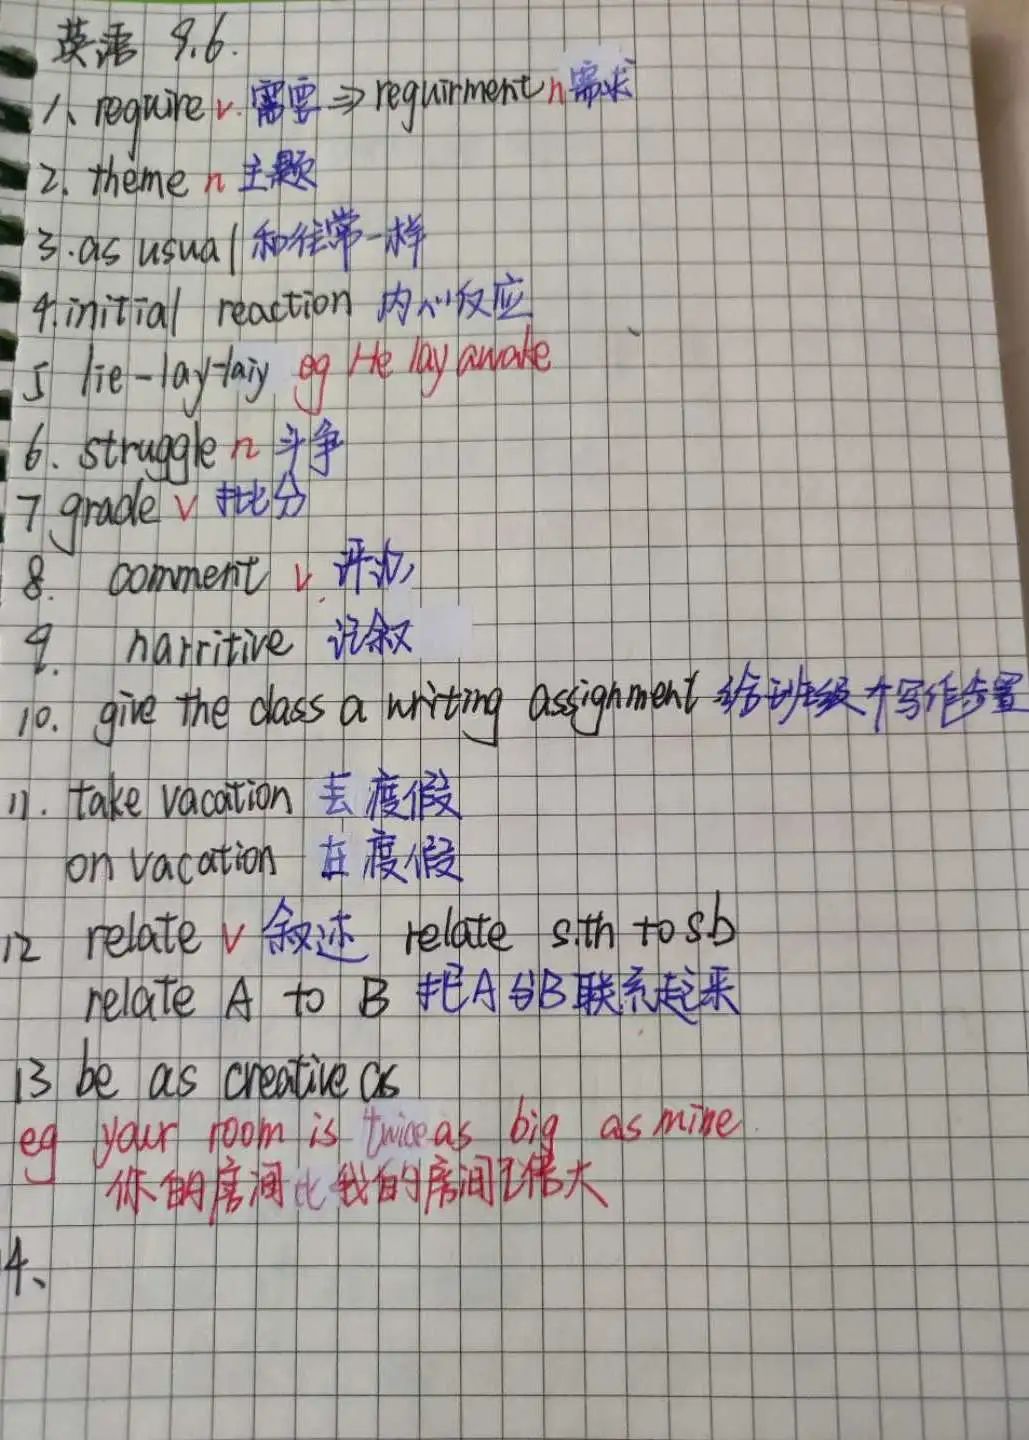 英语 9.6.
1、require v. 需要 ⇒ requirment n 需求
2. theme n 主题
3.as usual 和往常一样
4.initial reaction 内心反应
5 lie-lay-laiy eg He lay awake
6. struggle n 斗争
7 grade v 批分
8. comment v. 评
9. narritive 记叙
10. give the class a writing assignment 给班级个写作步置
11. take vacation 去度假
on vacation 在度假
12 relate v 叙述 relate s.th to s.b
relate A to B 把A与B联系起来
13 be as creative as
eg your room is twice as big as mine.
你的房间比我的房间2倍大
14、